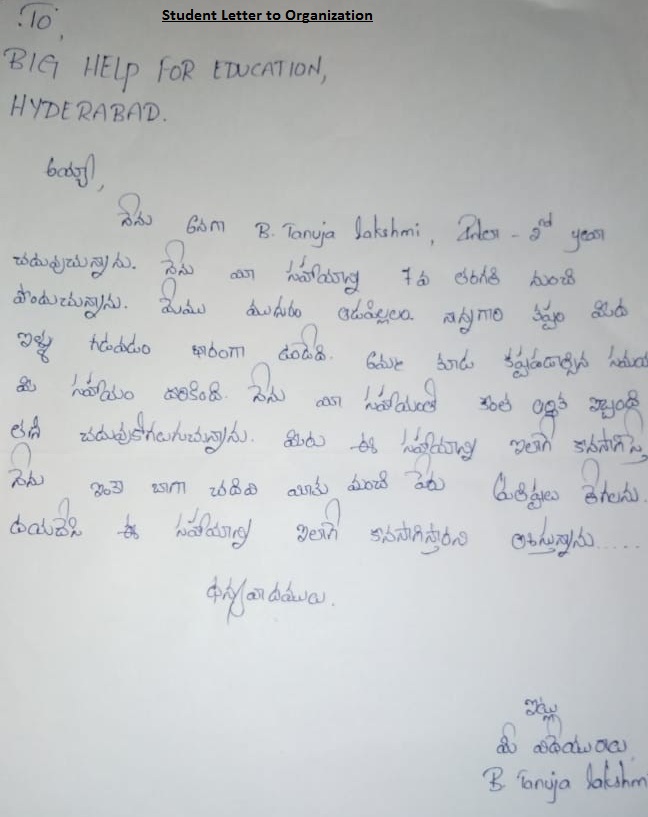 Student Letter to Organization
To,
BIG HELP FOR EDUCATION,
HYDERABAD.
అయ్యా,
నేను అనగా B. Tanuja lakshmi, ఇంటర్ - 2nd year
చదువుచున్నాను. నేను మీ సహాయాన్ని 7వ తరగతి నుంచి
పొందుచున్నాను. మేము ముగ్గురం ఆడపిల్లలం. నాన్నగారి కష్టం మీద
ఇళ్ళు గడవడం భారంగా ఉండేది. కష్టపడాల్సిన సమయ
మీ సహాయం దొరికింది. నేను మీ సహాయంతో కొంత ఆర్థిక ఇబ్బంది
లేక చదువుకోగలుగుచున్నాను. మీరు ఈ సహాయాన్ని ఇలాగే కొనసాగిస్తే
నేను ఇంకా బాగా చదివి మీకు మంచి పేరు ప్రతిష్టలు తేగలను.
దయచేసి ఈ సహాయాన్ని ఇలాగే కొనసాగిస్తారని ఆశిస్తున్నాను.....
ధన్యవాదములు.
ఇట్లు
మీ విధేయురాలు
B Tanuja lakshmi